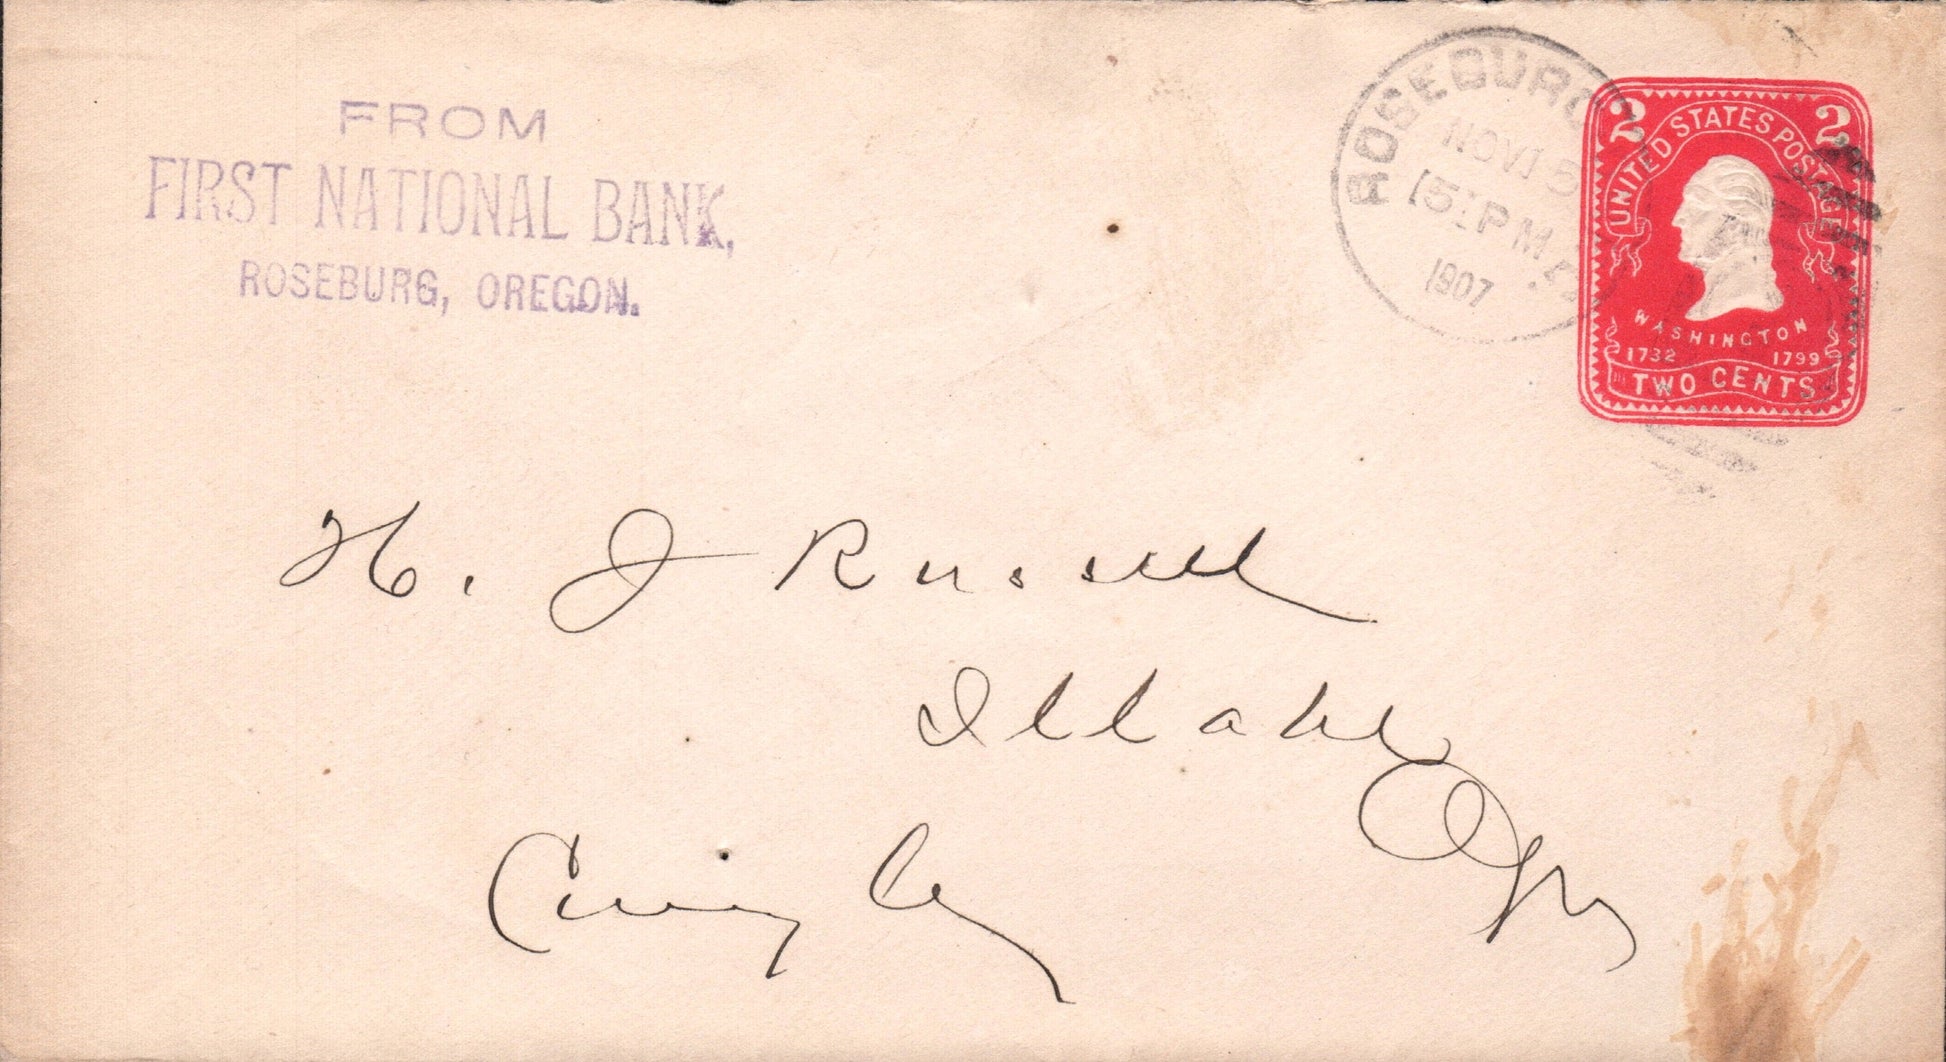 FROM
FIRST NATIONAL BANK,
ROSEBURG, OREGON.
ROSEBURG
NOV 15
5-PM
1907
2 2
UNITED STATES POSTAGE
WASHINGTON
1732 1799
TWO CENTS
H. J Russell
Illahe
Ogn
Curry Co